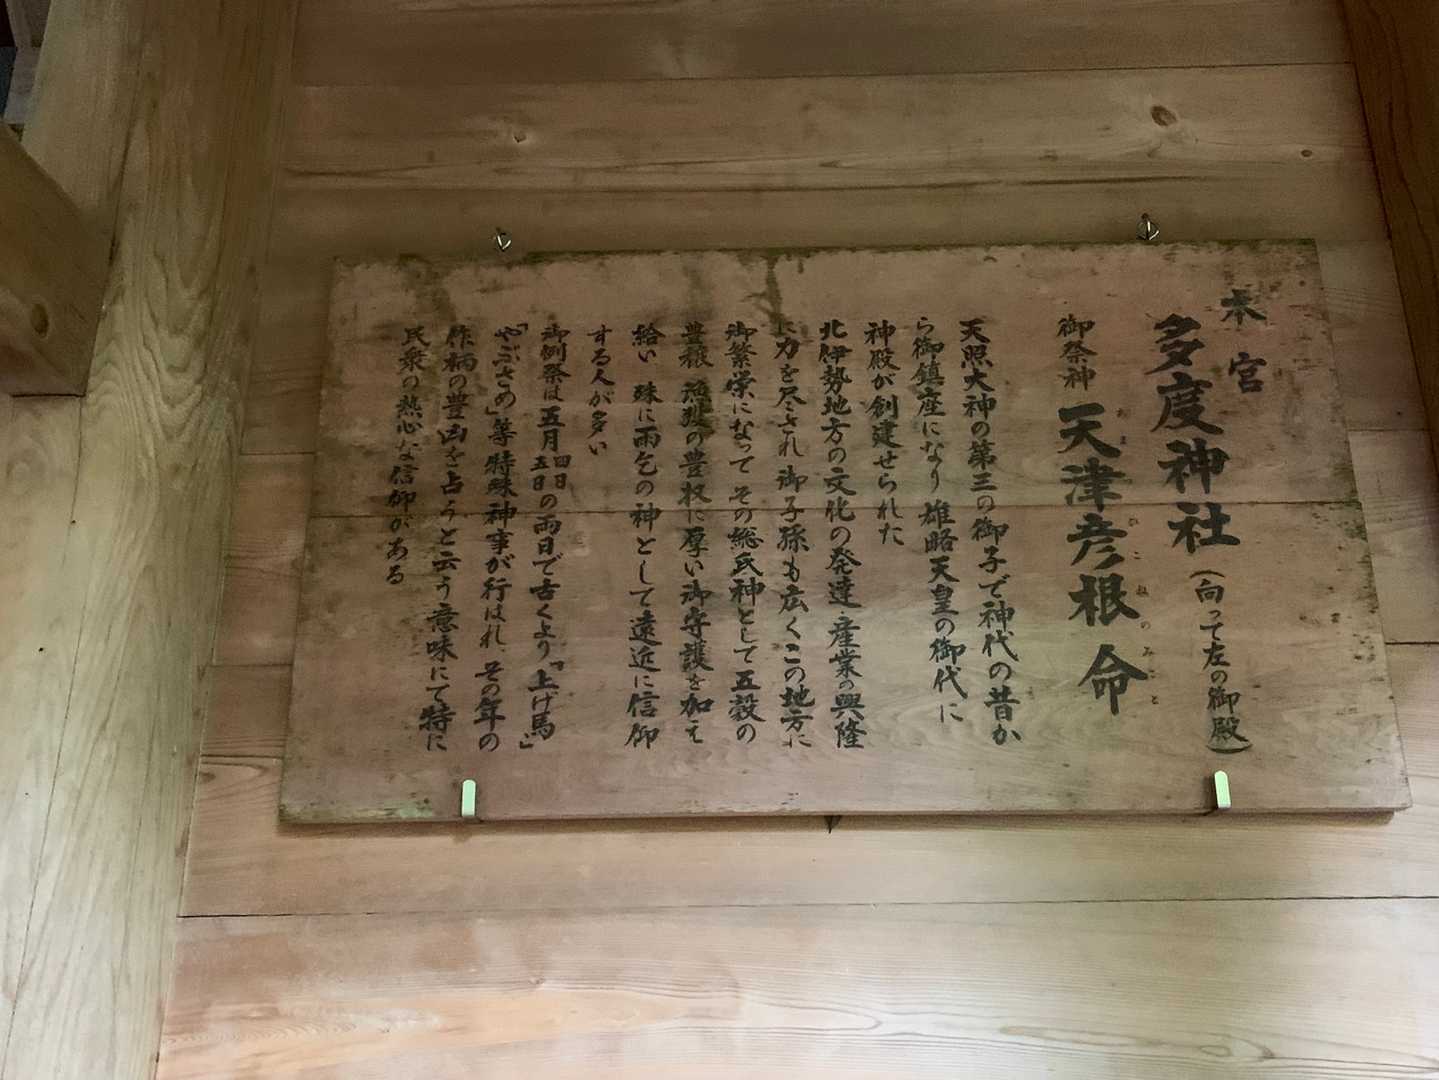 本宮
多度神社(向って左の御殿)
御祭神 天津彦根命
あまひこねのみこと
天照大神の第三の御子で神代の昔か
ら御鎮座になり雄略天皇の御代に
神殿が創建せられた
北伊勢地方の文化の発達産業の興隆
に力を尽され御子孫も広くこの地方に
御繁栄になって その総氏神として五穀の
豊穣 漁獲の豊收に厚い御守護を加え
給い 殊に雨乞の神として遠近に信仰
する人が多い
御例祭は五月四日五日の両日で古くより「上げ馬」
「やぶさめ」等特殊神事が行はれ その年の
作柄の豊凶を占うと云う意味にて特に
民衆の熱心な信仰がある